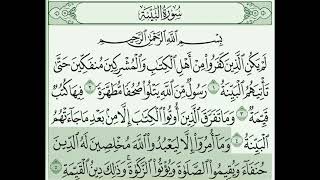 سُورَةُ البَيِّنَةِ
بِسْمِ اللَّهِ الرَّحْمَٰنِ الرَّحِيمِ
لَمْ يَكُنِ الَّذِينَ كَفَرُوا مِنْ أَهْلِ الْكِتَابِ وَالْمُشْرِكِينَ مُنفَكِّينَ حَتَّىٰ
تَأْتِيَهُمُ الْبَيِّنَةُ ١ رَسُولٌ مِّنَ اللَّهِ يَتْلُوا صُحُفًا مُّطَهَّرَةً ٢ فِيهَا كُتُبٌ
قَيِّمَةٌ ٣ وَمَا تَفَرَّقَ الَّذِينَ أُوتُوا الْكِتَابَ إِلَّا مِن بَعْدِ مَا جَاءَتْهُمُ
الْبَيِّنَةُ ٤ وَمَا أُمِرُوا إِلَّا لِيَعْبُدُوا اللَّهَ مُخْلِصِينَ لَهُ الدِّينَ
حُنَفَاءَ وَيُقِيمُوا الصَّلَاةَ وَيُؤْتُوا الزَّكَاةَ وَذَٰلِكَ دِينُ الْقَيِّمَةِ ٥